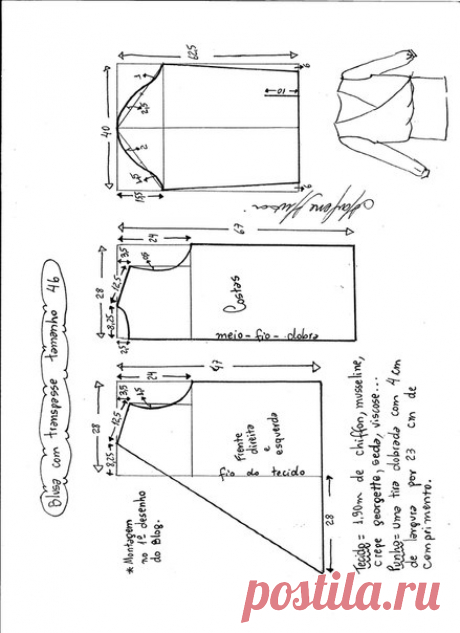 Blusa com transpasse tamanho 46
62,5
40
15,5
2
2,5
1,5
10
6
6
67
24
3,5
12,5
28
8,25
2,5
Costas
meio-fio-dobra
47
24
3,5
1,5
12,5
28
8,25
Frente
direita
e
esquerda
fio do tecido
28
* Montagem
no 1º desenho
do Blog.
Tecido = 1,90m de chiffon, musseline,
crepe georgette, seda, viscose...
Punho = uma tira dobrada com 4 cm
de largura por 23 cm de
comprimento.
postila.ru